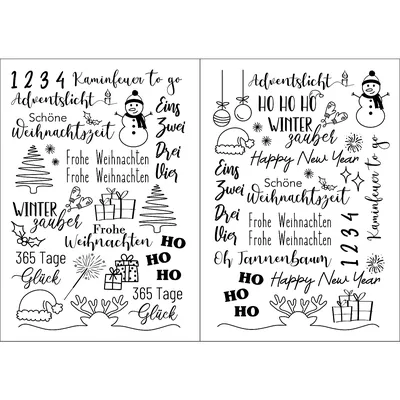 1 2 3 4 Kaminfeuer to go
Adventslicht
Schöne
Weihnachtszeit
Eins
Zwei
Drei
Vier
Frohe Weihnachten
Frohe Weihnachten
WINTER
zauber
Frohe
Weihnachten
HO
HO
HO
365 Tage
Glück
365 Tage
Glück
Adventslicht
HO HO HO
WINTER
zauber
Happy New Year
Eins
Zwei
Drei
Vier
Schöne
Weihnachtszeit
Frohe Weihnachten
Frohe Weihnachten
1 2 3 4
Kaminfeuer to go
Oh Tannenbaum
Happy New Year
HO
HO
HO